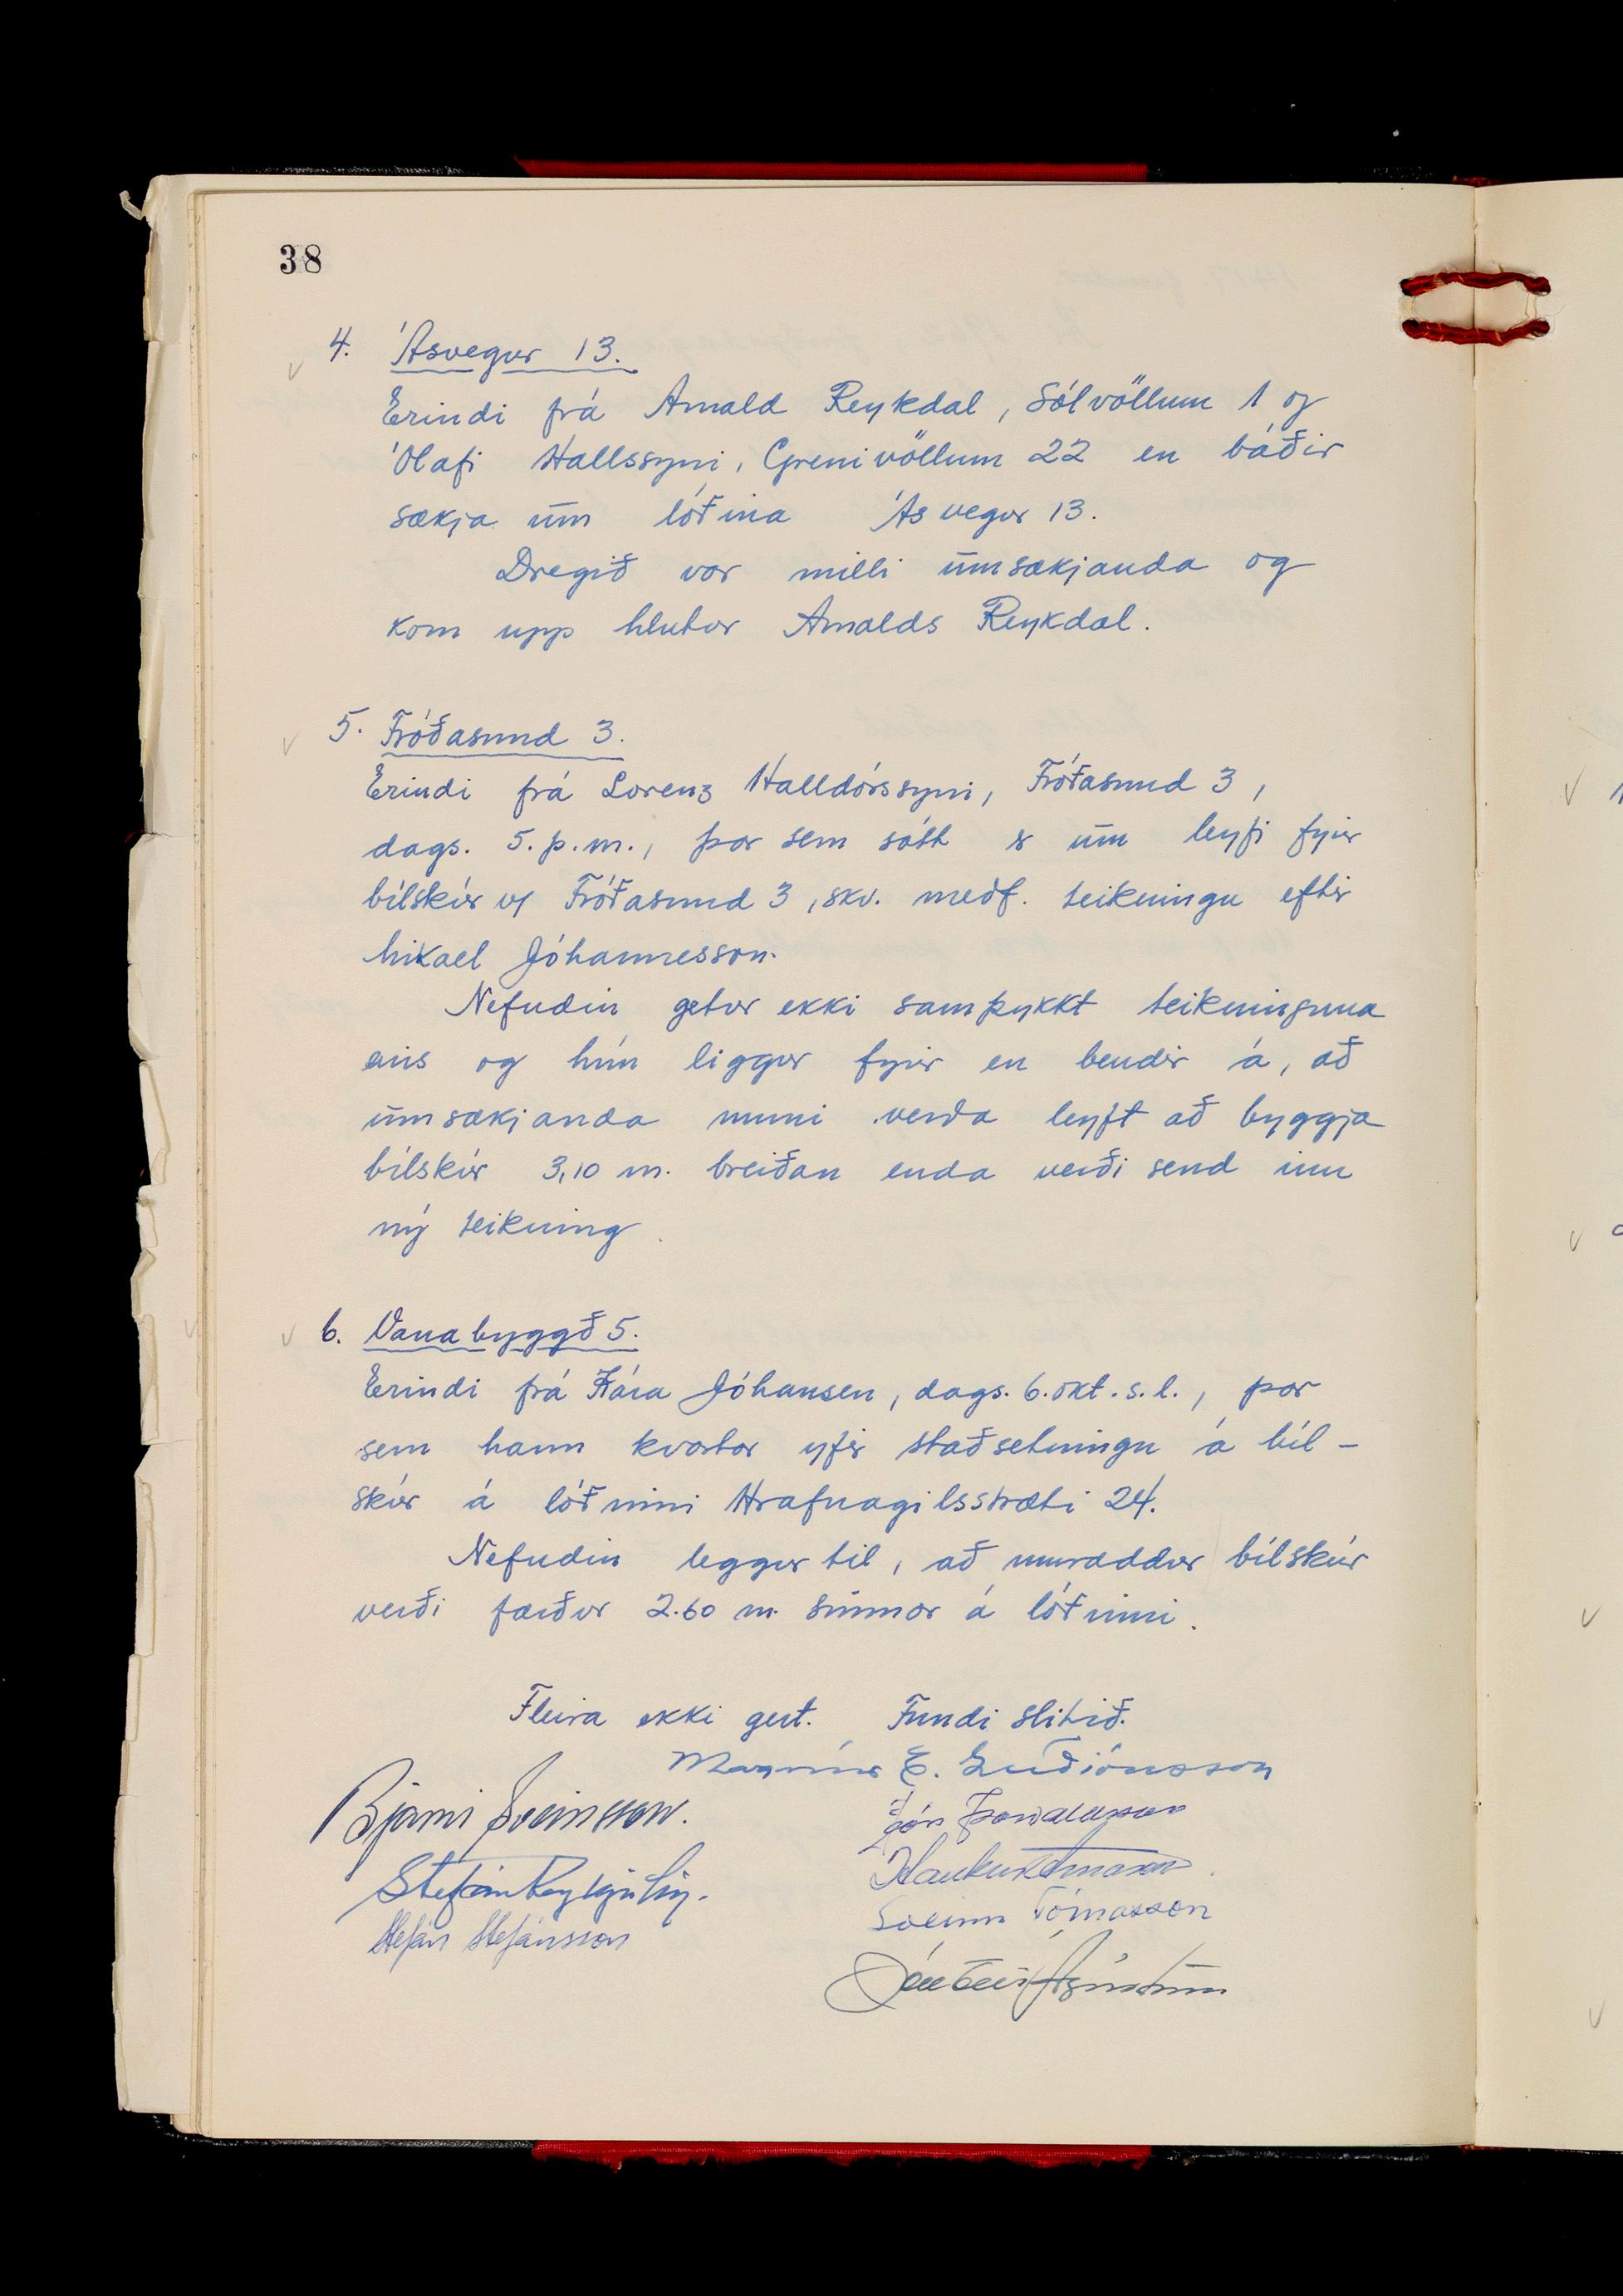 38
4. Ásvegur 13.
Erindi frá Arnald Reykdal, Sólvöllum 1 og
Ólafi Hallssyni, Grenivöllum 22 en báðir
sækja um lóðina Ásvegur 13.
Dregið var milli umsækjanda og
kom upp hlutur Arnalds Reykdal.
5. Fróðasund 3.
Erindi frá Lorenz Halldórssyni, Fróðasund 3,
dags. 5. þ.m., þar sem sótt er um leyfi fyrir
bílskúr v/ Fróðasund 3, skv. meðf. teikningu eftir
Mikael Jóhannesson.
Nefndin getur ekki samþykkt teikninguna
eins og hún liggur fyrir en bendir á, að
umsækjanda muni verða leyft að byggja
bílskúr 3,10 m. breiðan enda verði send inn
ný teikning.
6. Vanabyggð 5.
Erindi frá Kára Jóhansen, dags. 6. okt. s.l., þar
sem hann kvartar yfir staðsetningu á bíl-
skúr á lóðinni Hrafnagilsstræti 24.
Nefndin leggur til, að umræddur bílskúr
verði færður 2.60 m. sunnar á lóðinni.
Fleira ekki gert. Fundi slitið.
Magnús E. Guðjónsson
Bjarni Sveinsson.
Jón Þorvaldsson
Stefán Reykjalín.
Haukur Árnason
Stefán Stefánsson
Sveinn Tómasson